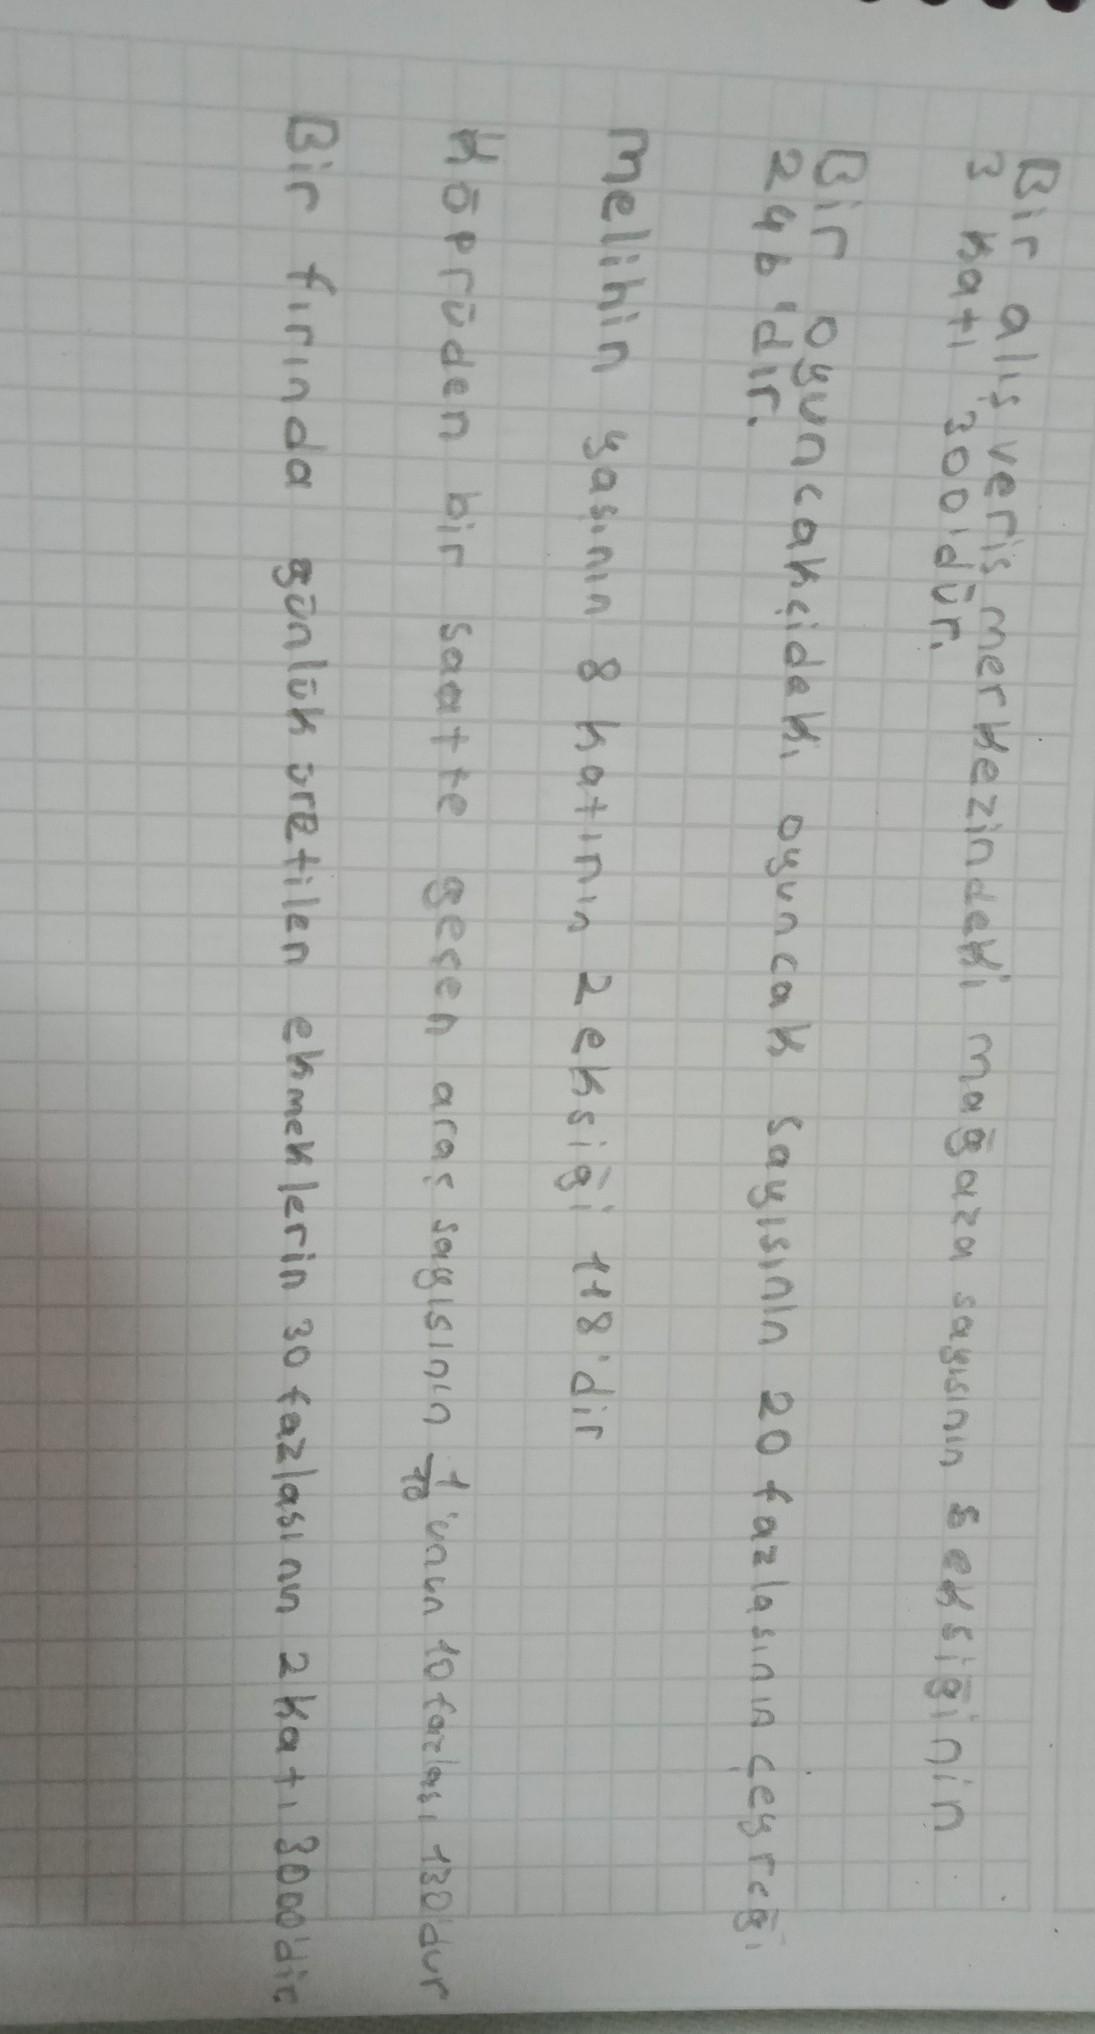 Bir alışveriş merkezindeki mağaza sayısının 5 eksiğinin
3 katı 300'dür.
Bir oyuncakcıdaki oyuncak sayısının 20 fazlasının çeyreği
246'dır.
melihin yaşının 8 katının 2 eksiği 118'dir
Köprüden bir saatte geçen araç sayısının 1/10'unun 10 fazlası 130'dur
Bir fırında günlük üretilen ekmeklerin 30 fazlasının 2 katı 3000'dir.